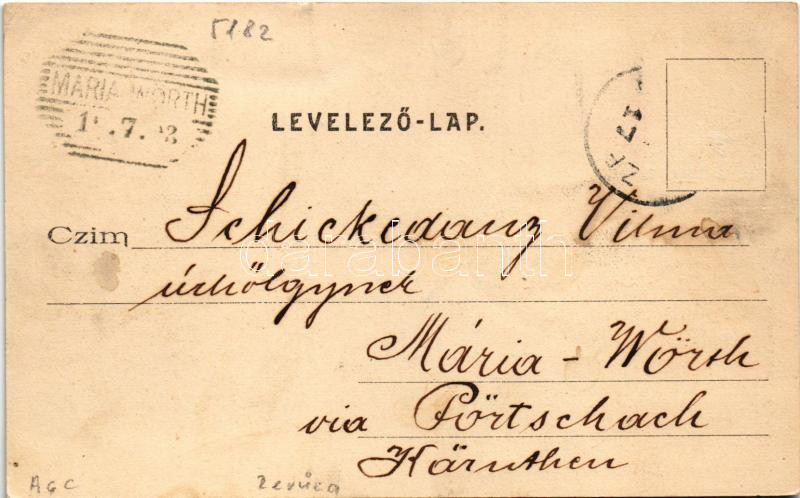 5182
MARIA WÖRTH
LEVELEZŐ-LAP.
17
Czim Schickedanz Vilma
úrhölgynek
Mária - Wörth
via Pörtschach
Kärnthen
AGC
darabanth